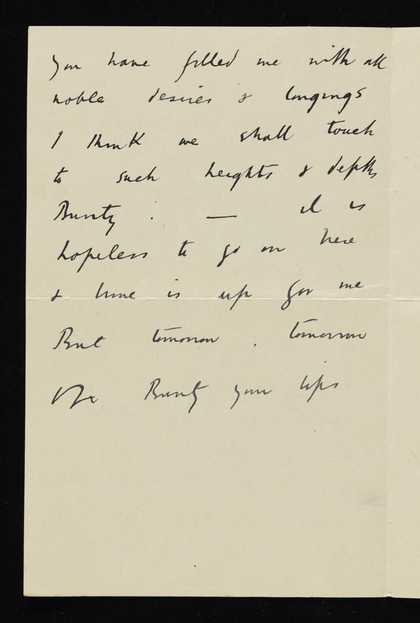 you have filled me with all
noble desires & longings
I think we shall touch
to such heights & depths
Bunty : — it is
hopeless to go on here
& time is up for me
But tomorrow , tomorrow
Bunty your lips